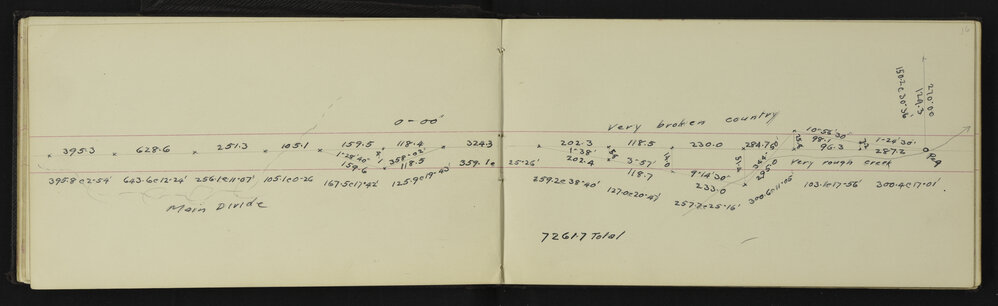 0-00'
395.3 628.6 251.3 105.1 159.5 118.4 324.3
1-28'40" 358-02'
159.6 118.5
395.8@2-54' 643.6@12-24' 256.1@11-07' 105.1@0-26 167.5@17-42' 125.9@19-43' 359.1@ 25-26'
Main Divide
16
270'00
129.3
150.2@30'36"
Very broken country
10-56'30"
202.3 118.5 230.0 284.7 98.7 1-24'30"
1-38' 96.3 287.2
202.4 3-57' 295.0 Very rough creek Peg
118.7 9-14'30"
233.0
259.2@38-40' 127.0@20-47' 257.7@25-16' 300.6@11-05' 103.1@17-56' 300.4@17-01'
7261.7 Total